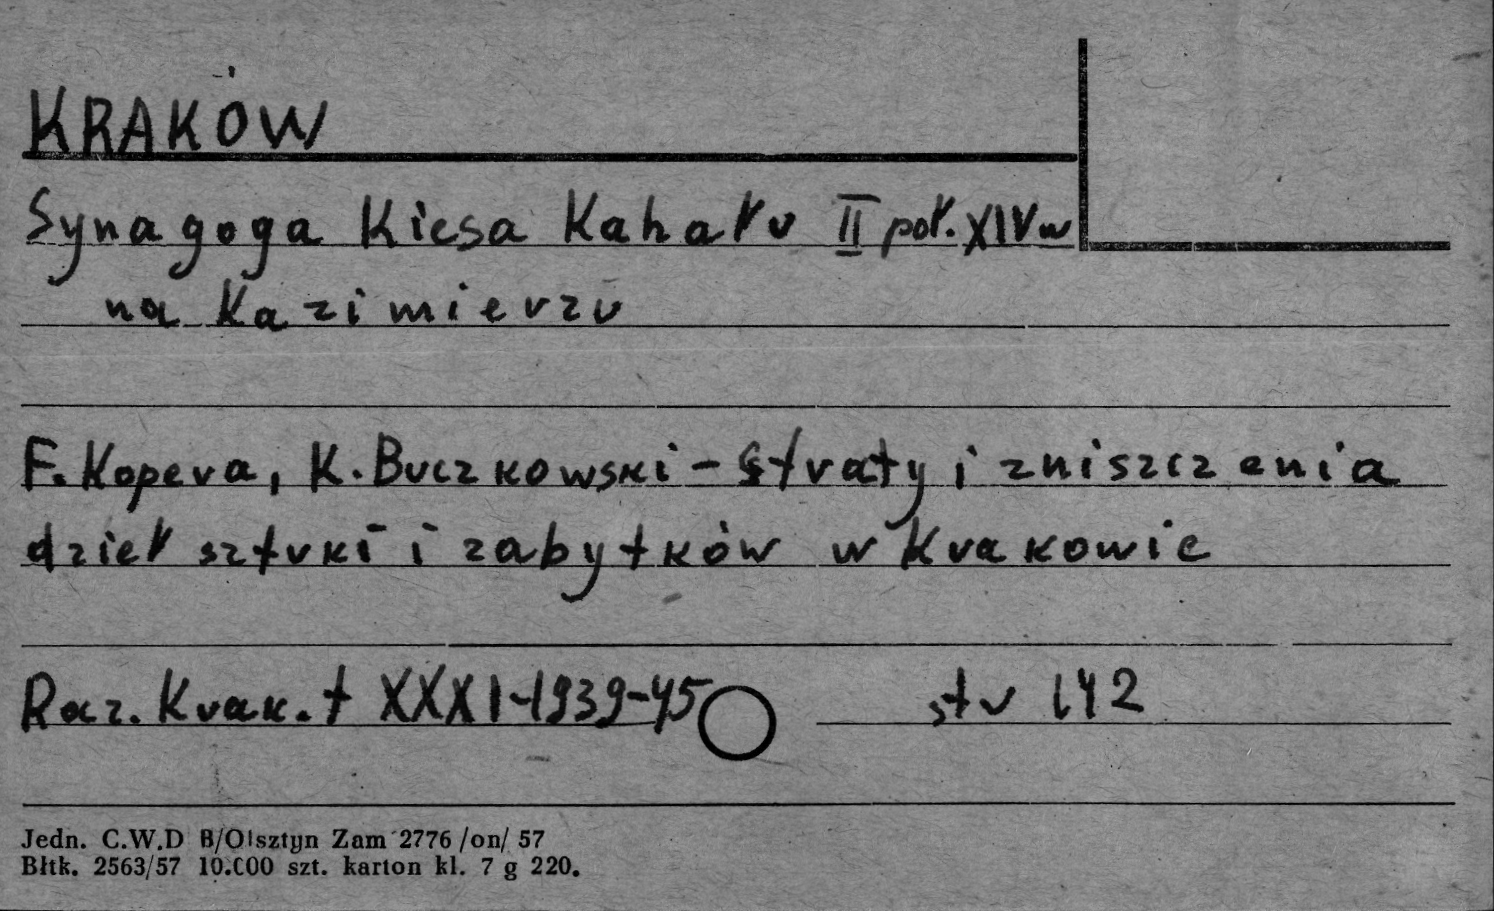 KRAKÓW
Synagoga Kiesa Kahału II poł. XIV w
na Kazimierzu
F. Kopera, K. Buczkowski - Straty i zniszczenia
dzieł sztuki i zabytków w Krakowie
Rocz. Krak. t XXXI-1939-45 str 142
Jedn. C.W.D B/Olsztyn Zam 2776 /on/ 57
Błtk. 2563/57 10.000 szt. karton kl. 7 g 220.